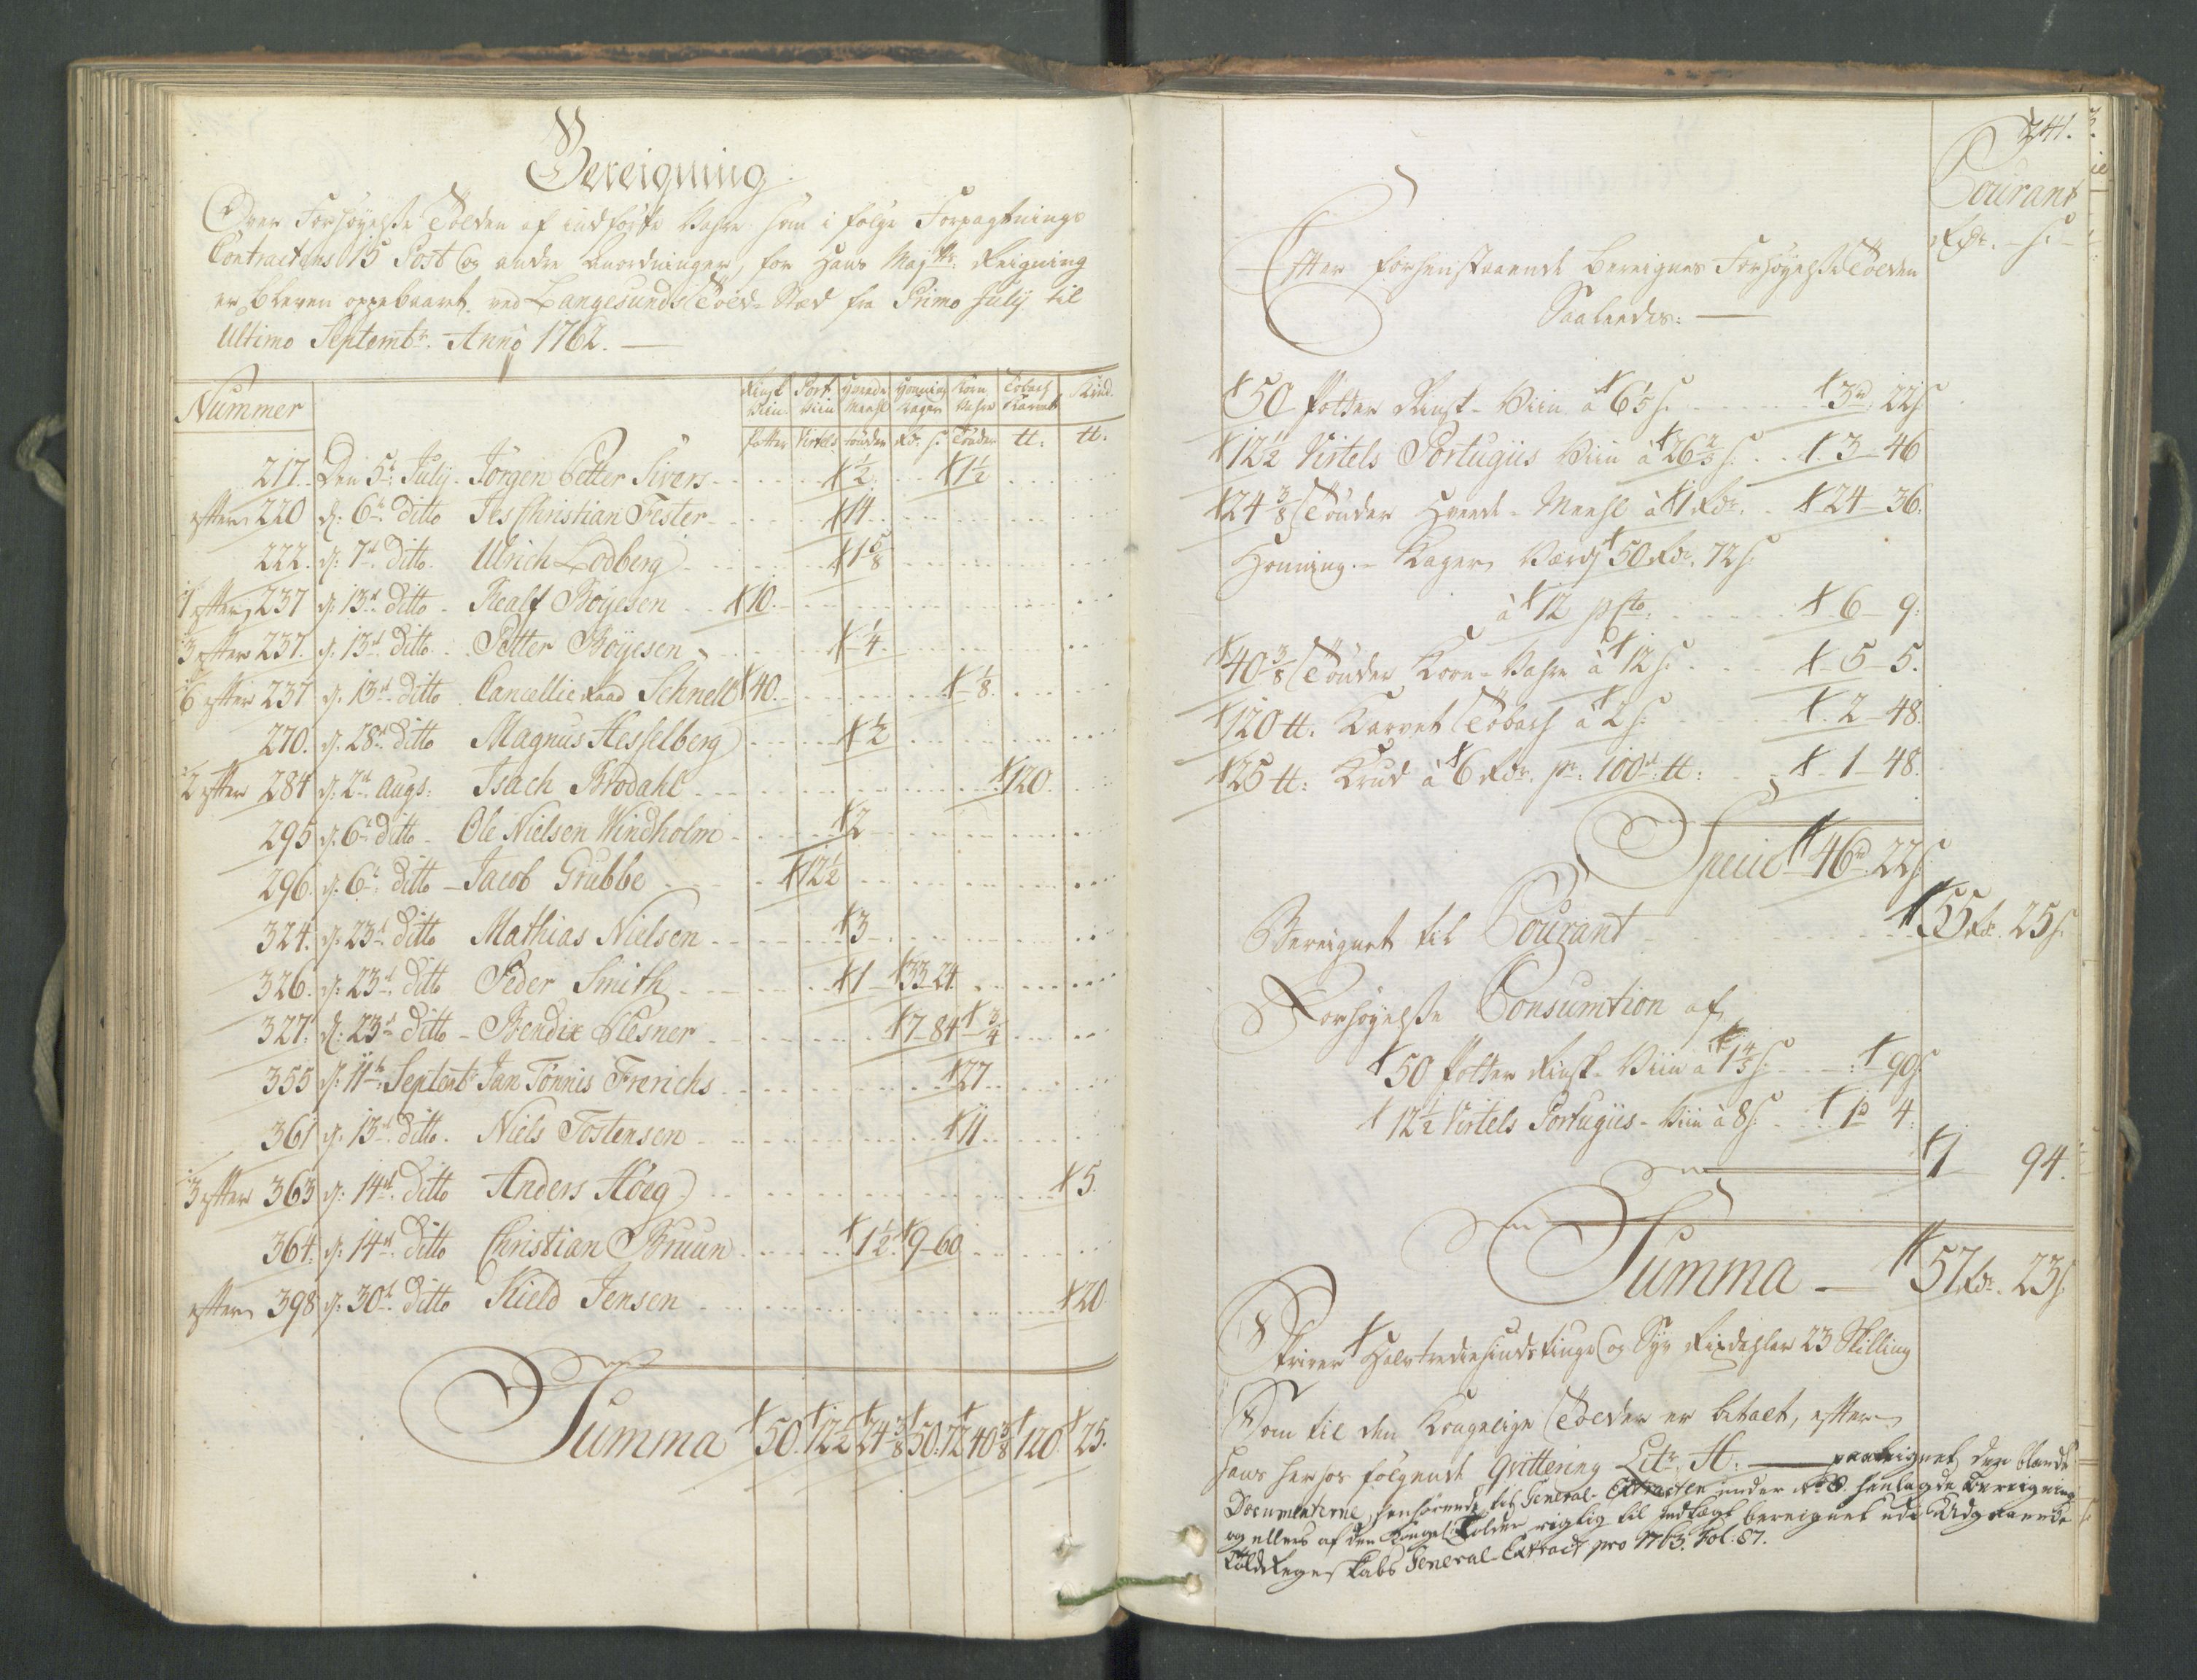 Bereigning
Over Forhöyelsse Tolden af indförte Vahre som i fölge Forpagtnings
Contractens 15 Post og andre anordninger, for Hans Maj:ts Reigning
er bleven oppebaaret ved Langesunds Told-Stæd fra Primo July til
Ultimo Septembr. Anno 1762.
Nummer Rinsk Viin Port Viin Hvede Meehl Honning Kager Korn Vahre Toback Karvet Krud.
Potter Virtels tönder Rdr. s. Tönder tt: tt:
217. Den 5t July. Jörgen Petter Sivers X ½ X 1½
efter 220 d: 6t ditto Jes Christian Fester X 14
222. d: 7d ditto. Ulrich Lodberg X 1 5/8
1 efter 237 d: 13d ditto. Realf Böyesen X 10
3 efter 237. d: 13d ditto. Petter Böyesen X ¼
6 efter 237 d: 13d ditto. Cancellie Raad Schnell X 40. X ⅛
270. d: 28d ditto Magnus Hesselberg X ½
2 efter 284 d: 2d augs: Isach Brodahl X 120.
295 d: 6t ditto Ole Nielsen Windholm X 2
296. d: 6t ditto Jacob Grubbe X 12½
324. d: 23d ditto Mathias Nielsen X 3
326. d: 23d ditto Peder Smith X 1 X 33 24
327. d: 23d ditto Bendix Plesner X 7-84 X ¾
355 d: 11t Septembr Jan Tönnis Frerichs X 27
361 d: 13d ditto. Niels Tostensen X 11
3 efter 363 d: 14d ditto Anders Höeg X 5.
364. d: 14d ditto Christian Bruun X 1½. X 9-60
efter 398 d: 30d ditto Kield Jensen X 20.
Summa X 50. X 12½ X 24 3/8 X 50. 72 X 40 3/8 X 120 X 25.
241.
Courant
Rdr. - s. -
Efter forhenstaaende bereignes Forhöyelsse Tolden
Saaleedes:
X 50 Potter Rinsk-Viin à X 6⅕ s. X 3rd: 22 s
X 12½ Virtels Portugiis Viin à X 26⅖ s. X 3-46
X 24 3/8 Tönder Hvede-Meehl à X 1 Rdr. X 24-36.
Honning-Kager Værdj X 50 Rdr. 72 s.
à X 12 pCto. X 6-9.
X 40 3/8 Tönder Korn-Vahre à X 12 s. X 5-5.
X 120 tt. Karvet Toback à X 2 s. X 2-48.
X 25 tt: Krud à X 6 Rdr. pr: 100d tt: X 1-48.
Specie X 46rd. 22 s
Bereignet til Courant X 55 Rdr. 25 s.
Forhöyelsse Consumtion af
X 50 Potter Rinsk-Viin à X 1⅘ s. X 90 s
X 12½ Virtels Portugiis-Viin à 8 s. X 1rd 4.
X 1 94.
Summa X 57 Rdr. 23 s.
Skriver X Halvtrediesindstiuge og Syv Rixdahler 23 Skilling
Som til den Kongelige Tolder er betalt, efter
hans herhos fölgende Qvittering Litr. H. paateignet den blandt
Documenterne, henhörende til General-Extracten under No 8. henlagde Bereigning
og ellers af den Kongel: Tolder rigtig til Indtægt bereignet udi Udgaaende
Told Regenskabs General-Extract pro 1763. Fol. 87.